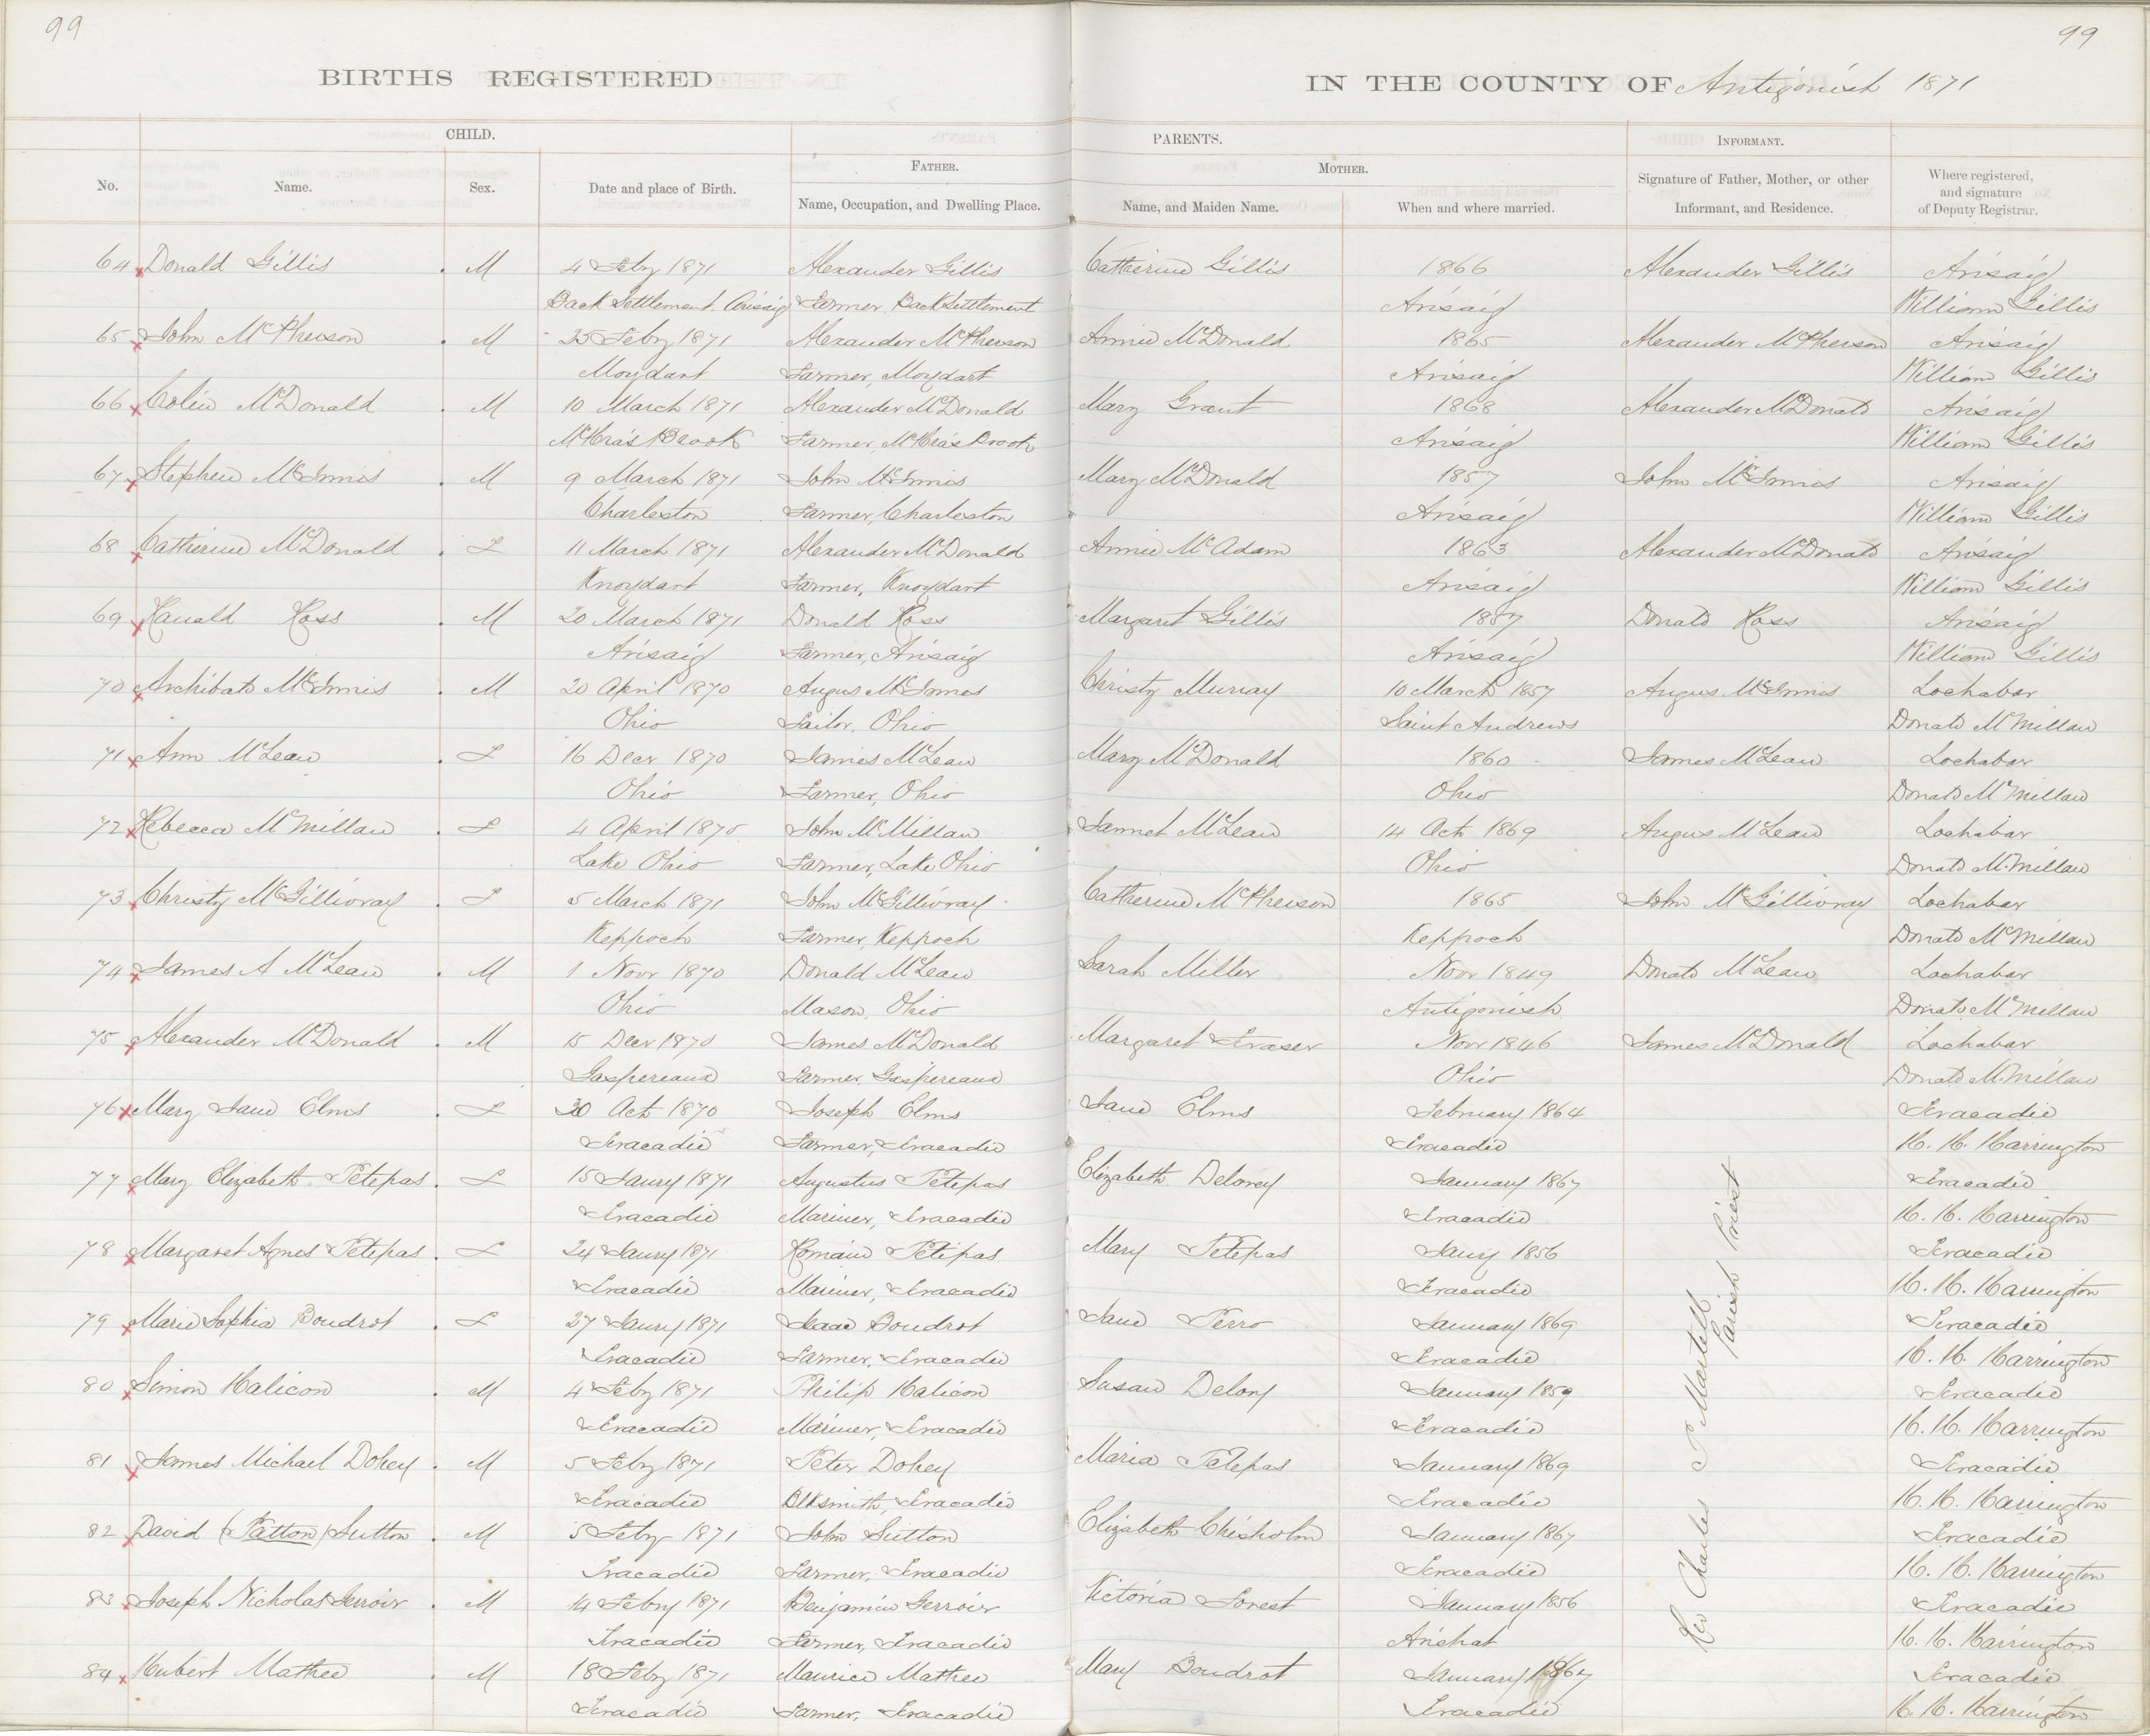 99
99
BIRTHS REGISTERED
IN THE COUNTY OF Antigonish 1871
CHILD.
PARENTS.
INFORMANT.
No.
Name.
Sex.
Date and place of Birth.
FATHER.
Name, Occupation, and Dwelling Place.
MOTHER.
Name, and Maiden Name.
When and where married.
Signature of Father, Mother, or other
Informant, and Residence.
Where registered,
and signature
of Deputy Registrar.
64 Donald Gillis M 4 Feby 1871 Alexander Gillis Catherine Gillis 1866 Alexander Gillis Arisaig
Back Settlement Arisaig Farmer, Back Settlement Arisaig William Gillis
65 John McPherson M 25 Feby 1871 Alexander McPherson Annie McDonald 1865 Alexander McPherson Arisaig
Moydart Farmer, Moydart Arisaig William Gillis
66 Colin McDonald M 10 March 1871 Alexander McDonald Mary Grant 1868 Alexander McDonald Arisaig
McAra's Brook Farmer, McAra's Brook Arisaig William Gillis
67 Stephen McInnis M 9 March 1871 John McInnis Mary McDonald 1857 John McInnis Arisaig
Charleston Farmer, Charleston Arisaig William Gillis
68 Catherine McDonald F 11 March 1871 Alexander McDonald Annie McAdam 1863 Alexander McDonald Arisaig
Knoydart Farmer, Knoydart Arisaig William Gillis
69 Ranald Ross M 20 March 1871 Donald Ross Margaret Gillis Donald Ross Arisaig
Arisaig Farmer, Arisaig Arisaig William Gillis
70 Archibald McInnis M 20 April 1870 Angus McInnes Christy Murray 10 March 1857 Angus McInnis Lochabar
Ohio Tailor, Ohio Saint Andrews Donald McMillan
71 Ann McLean F 16 Decr 1870 James McLean Mary McDonald 1860 James McLean Lochabar
Ohio Farmer, Ohio Ohio Donald McMillan
72 Rebecca McMillan F 4 April 1870 John McMillan Jannet McLean 14 Oct 1869 Angus McLean Lochabar
Lake Ohio Farmer, Lake Ohio Ohio Donald McMillan
73 Christy McGillivray F 5 March 1871 John McGillivray Catherine McPherson 1865 John McGillivray Lochabar
Keppoch Farmer, Keppoch Keppoch Donald McMillan
74 James A McLean M 1 Novr 1870 Donald McLean Sarah Miller Novr 1849 Donald McLean Lochabar
Ohio Mason, Ohio Antigonish Donald McMillan
75 Alexander McDonald M 15 Decr 1870 James McDonald Margaret Fraser Novr 1846 James McDonald Lochabar
Gaspereaux Farmer, Gaspereaux Ohio Donald McMillan
76 Mary Jane Elms F 30 Oct 1870 Joseph Elms Jane Elms February 1864 Tracadie
Tracadie Farmer, Tracadie Tracadie H. H. Harrington
77 Mary Elizabeth Petepas F 15 Jany 1871 Augustus Petepas Elizabeth Deloney January 1867 Tracadie
Tracadie Mariner, Tracadie Tracadie H. H. Harrington
78 Margaret Agnes Petepas F 24 Jany 1871 Romain Petipas Mary Petepas Jany 1856 Tracadie
Tracadie Mariner, Tracadie Tracadie H. H. Harrington
79 Marie Sophia Boudrot F 27 Jany 1871 Isaac Boudrot Jane Perro January 1869 Tracadie
Tracadie Farmer, Tracadie Tracadie H. H. Harrington
80 Simon Halicon M 4 Feby 1871 Philip Halicon Susan Delony January 1859 Tracadie
Tracadie Mariner, Tracadie Tracadie H. H. Harrington
81 James Michael Dohey M 5 Feby 1871 Peter Dohey Maria Petepas January 1869 Tracadie
Tracadie Blksmith, Tracadie Tracadie H. H. Harrington
82 David (Patton) Sutton M 5 Feby 1871 John Sutton Elizabeth Chisholm January 1867 Tracadie
Tracadie Farmer, Tracadie Tracadie H. H. Harrington
83 Joseph Nicholas Gerroir M 14 Feby 1871 Benjamin Gerroir Victoria Forest January 1856 Tracadie
Tracadie Farmer, Tracadie Arichat H. H. Harrington
84 Hubert Mathee M 18 Feby 1871 Maurice Mathee Mary Boudrot January 1867 Tracadie
Tracadie Farmer, Tracadie Tracadie H. H. Harrington
Rev Charles F Martell
Parish Priest